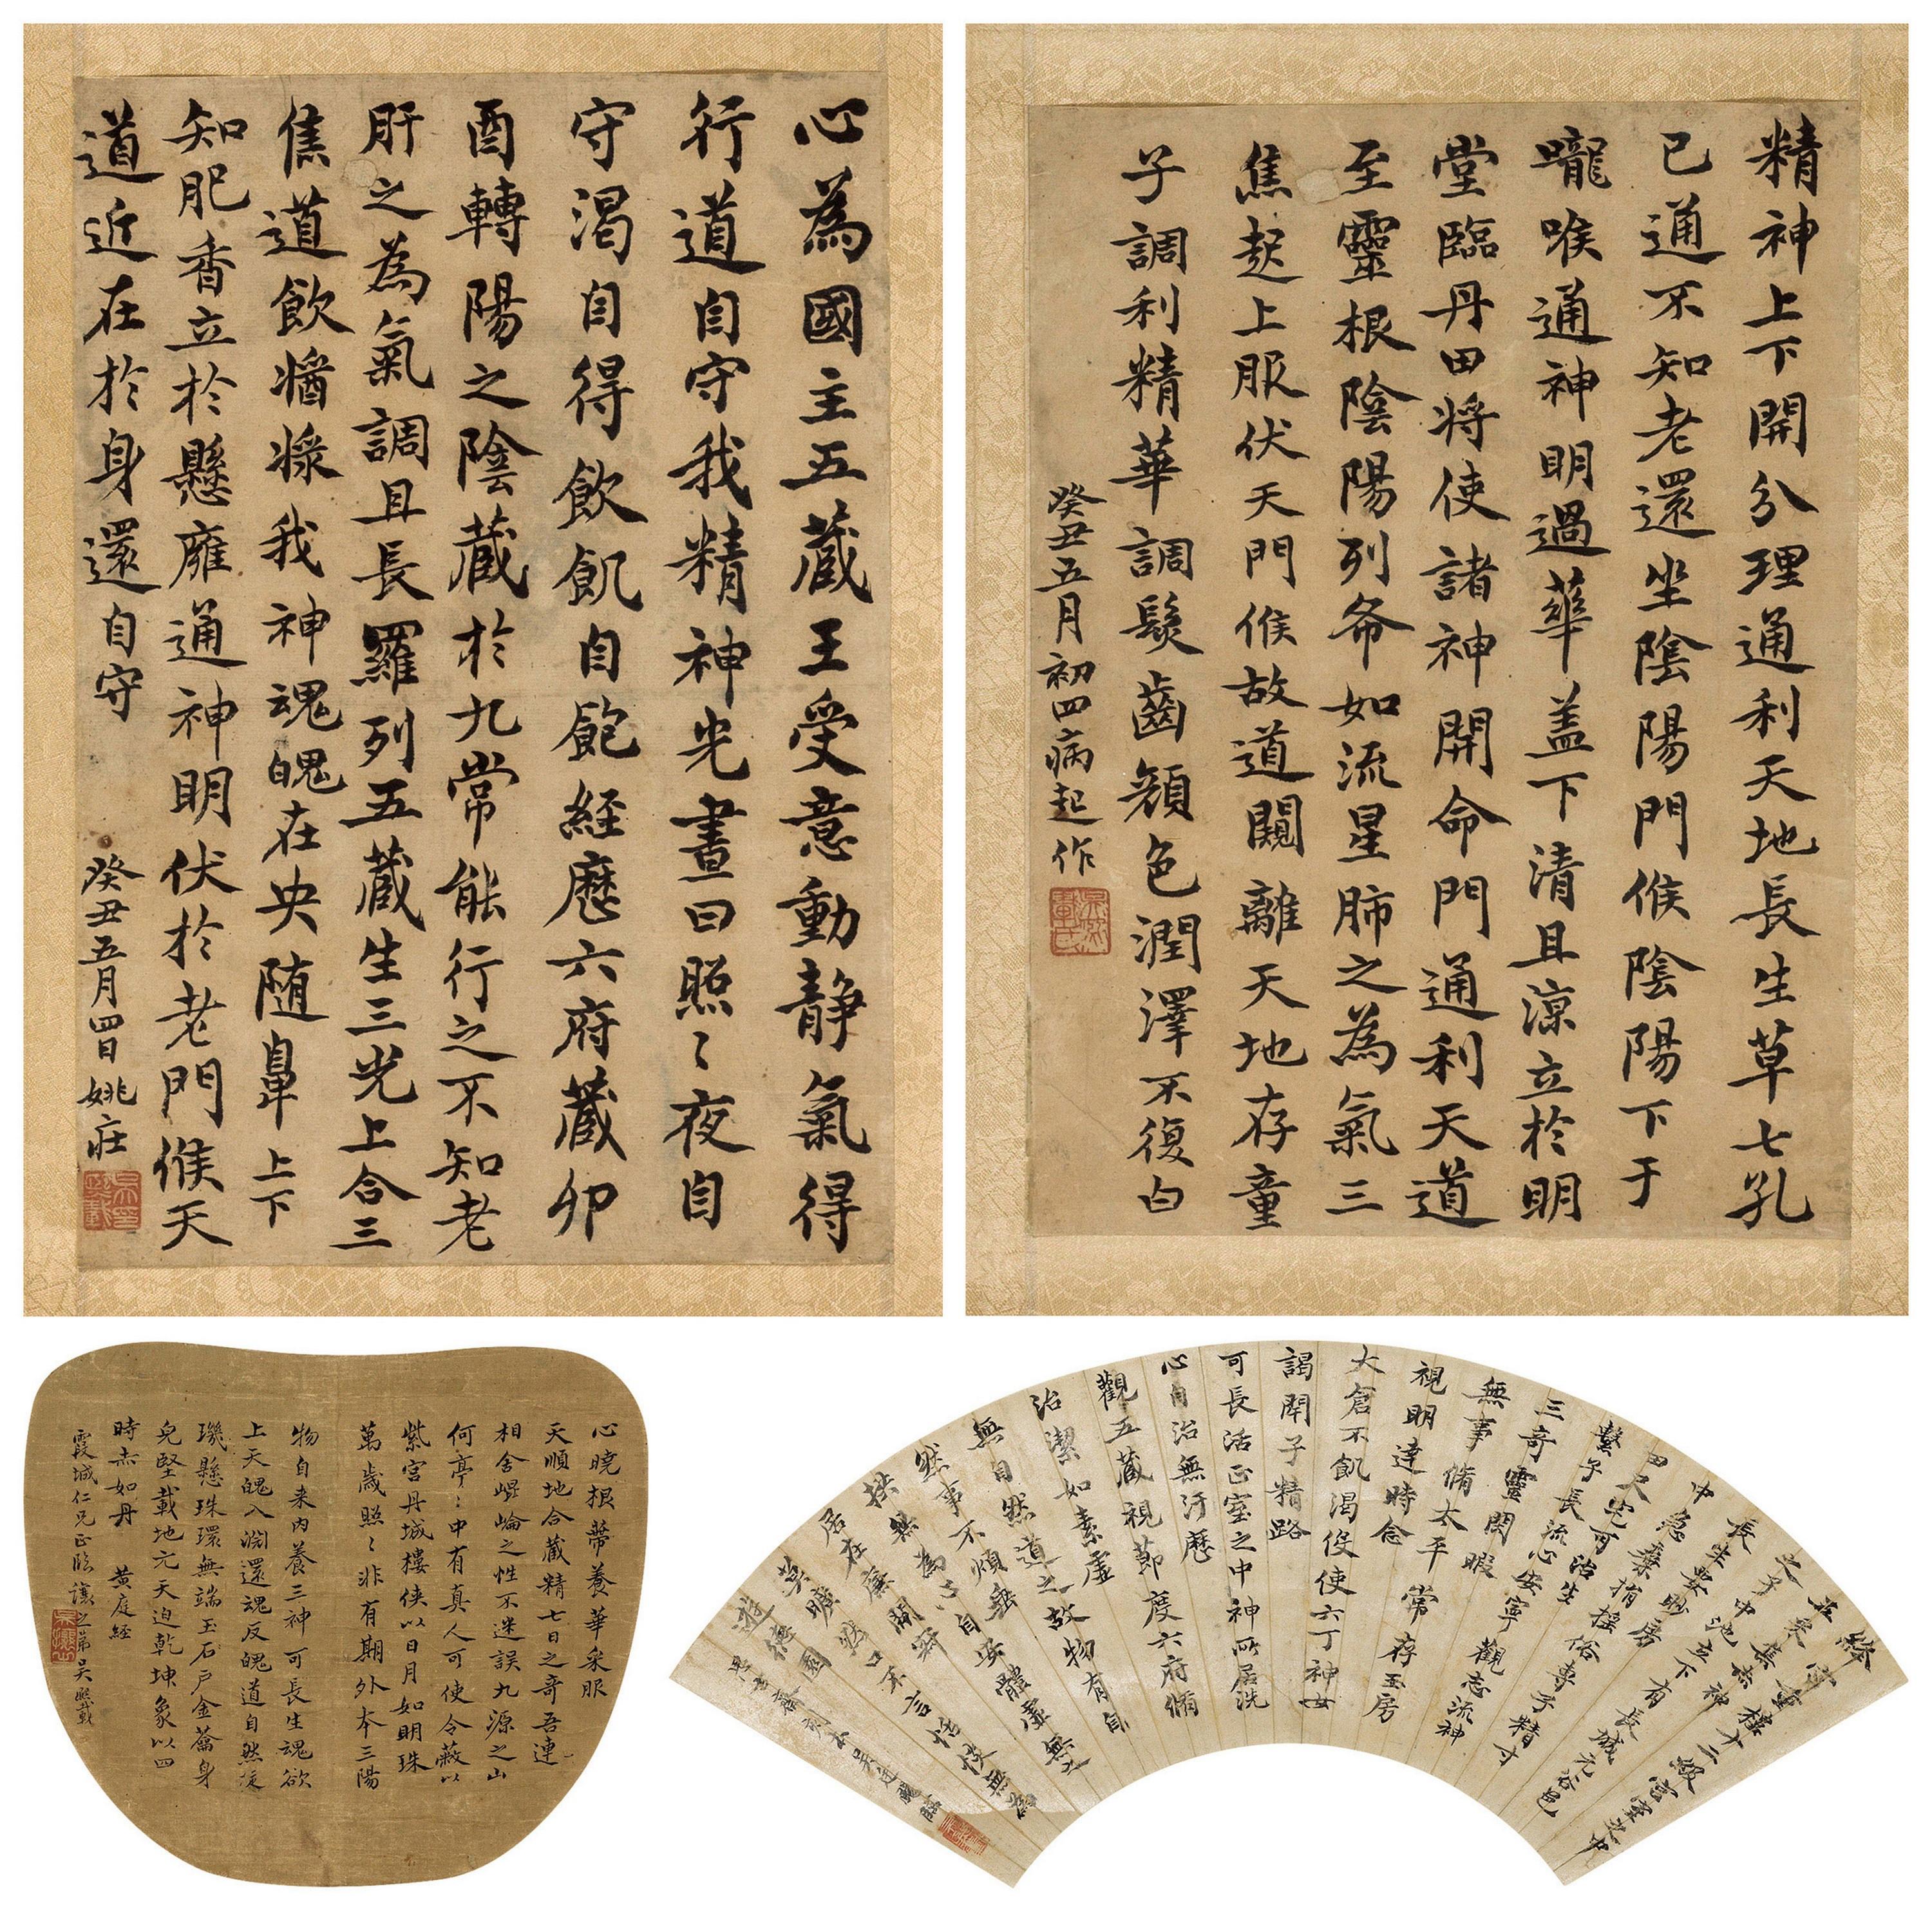 心為國主五藏王受意動靜氣得
行道自守我精神光晝日照〻夜自
守渴自得飲飢自飽経歷六府藏卯
酉轉陽之陰藏於九常能行之不知老
肝之為氣調且長羅列五藏生三光上合三
焦道飲醬漿我神魂魄在央随鼻上下
知肥香立於懸癰通神明伏於老門候天
道近在於身還自守
癸丑五月四日姚莊
精神上下開分理通利天地長生草七孔
已通不知老還坐陰陽門候陰陽下于
嚨喉通神明過華盖下清且涼立於明
堂臨丹田将使諸神開命門通利天道
至靈根陰陽列布如流星肺之為氣三
焦起上服伏天門候故道闚離天地存童
子調利精華調髮齒顔色潤澤不復白
癸丑五月初四病起作
心曉根蔕養華采服
天順地合藏精七日之奇吾連
相舍崐崘之性不迷誤九源之山
何亭〻中有真人可使令蔽以
紫宮丹城樓俠以日月如明珠
萬歲照〻非有期外本三陽
物自来内養三神可長生魂欲
上天魄入淵還魂反魄道自然旋
璣懸珠環無端玉石戶金籥身
皃堅載地元天迫乾坤象以四
時赤如丹 黄庭経
霞城仁兄正臨 讓之弟吳熙載
長生要眇房
中急棄捐揺俗專子精寸
田尺宅可治生
繫子長流心安寧觀志流神
三奇靈閑暇
無事脩太平常存玉房
視明達時念
大倉不飢渴侵使六丁神女
謁閉子精路
可長活正室之中神所居洗
心自治無汙歷
觀五藏視節度六府脩
治潔如素虛
無自然道之故物有自
然事不煩垂
拱無為心自安體虛無之
居在廉閒寂
莫曠然口不言恬惔無為
遊德園